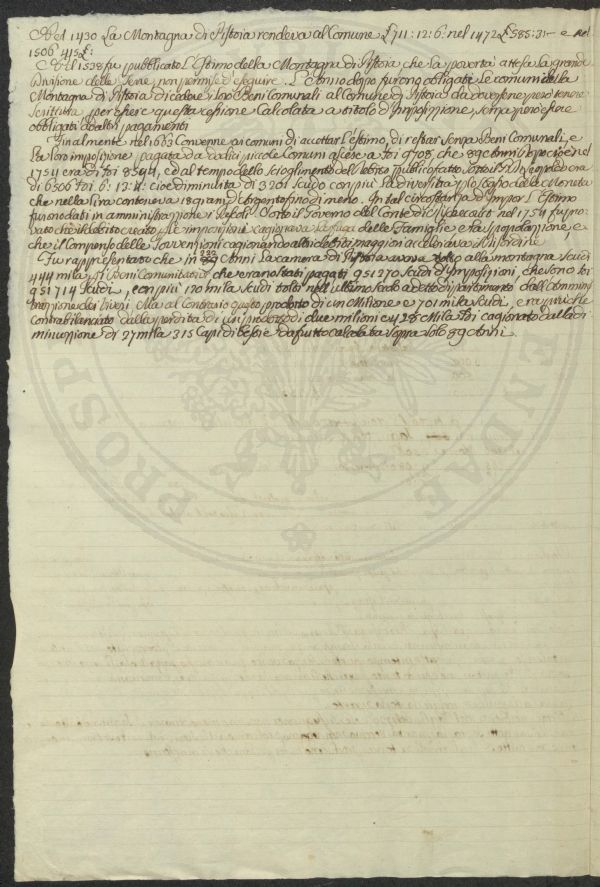 Nel 1430 La Montagna di Pistoia rendeva al Comune £711:12:6: nel 1472 £585:3:- e nel
1506 415 £:
Nel 1538 fu pubblicato L'Estimo della Montagna di Pistoia, che La povertà attesa la grande
Divisione delle Terre, non permise d'eseguire. L'Anno dopo furono obligate Le comuni della
Montagna di Pistoia di cedere i loro Beni Comunali al Comune di Pistoia da doversene però tenere
scrittura, per essere questa cessione Calcolata a titolo d'Imposizione, senza però essere
obbligati ad altri pagamenti
Finalmente nel 1663 Convenne ai comuni di accettar L'estimo, di restar senza Beni Comunali, e
La loro imposizione pagata da dodici piccole Comuni ascese a 9708, che 89 anni dopo cioè nel
1751 era di 8564, ed al tempo dello scioglimento del
di 6506 : 6: 12:4: cioè diminuita di 3201 Scudo con più La diversità della Moneta
che nella Lira conteneva 18 grani d'Argento fino di meno. In tal circostanza d'Impor L'Estimo
furono dati in amministrazione i Sotto il Governo del Conte di nel 1754 fu
le imposizioni cagionava La fuga delle Famiglie e La spopolazione, e
che il Compenso delle Sovvenzioni cagionando altri debiti maggiori accelerava
Fu rappresentato che in 220 89 Anni La camera di Pistoia aveva tolto alla montagna Scudi
444 mila di Beni Comunitativi che erano stati pagati 951270 Scudi d'Imposizioni, che sono
951714 Scudi, con più 120 mila Scudi tolti nell'ultimo Saldo a detto dipartimento dall'Ammini
strazione dei Ma al Contrario questo prodotto di un Milione e 701 mila Scudi, era più che
Contrabilanciato dalla perdita di un prodotto di due milioni e 428 Mila cagionato dalla di
minuzione di 27 mila 315 Capi di bestie da frutto calcolata sopra solo 89 Anni.
PROSP ENDAE